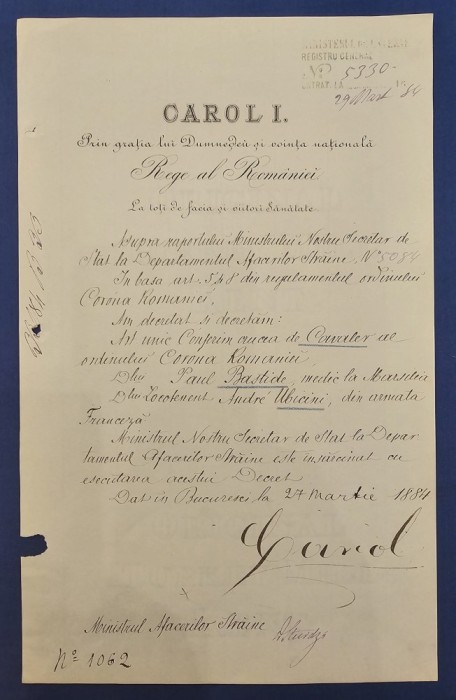 REGISTRU GENERAL
No 5330
29 Mart 84
CAROL I.
Prin grația lui Dumnedeŭ și voința națională
Rege al României
La toți de facia și viitori Sănătate.
Asupra raportului Ministrului Nostru Secretar de
Stat la Departamentul Afacerilor Străine, No 5084
In basa art. 5 și 8 din regulamentul ordinului
Corona Romaniei,
Am decretat și decretăm:
Art unic Conferim crucea de Cavaler al
ordinului Corona Romaniei,
Dlui Paul Bastide, medic la Marsilia
Dlui Locotenent André Ubicini, din armata
Franceză
Ministrul Nostru Secretar de Stat la Depar-
tamentul Afacerilor Străine este însărcinat cu
esecutarea acestui Decret
Dat in Bucuresci la 24 Martie 1884
Carol
Ministrul Afacerilor Străine
D. Sturdza
No 1062